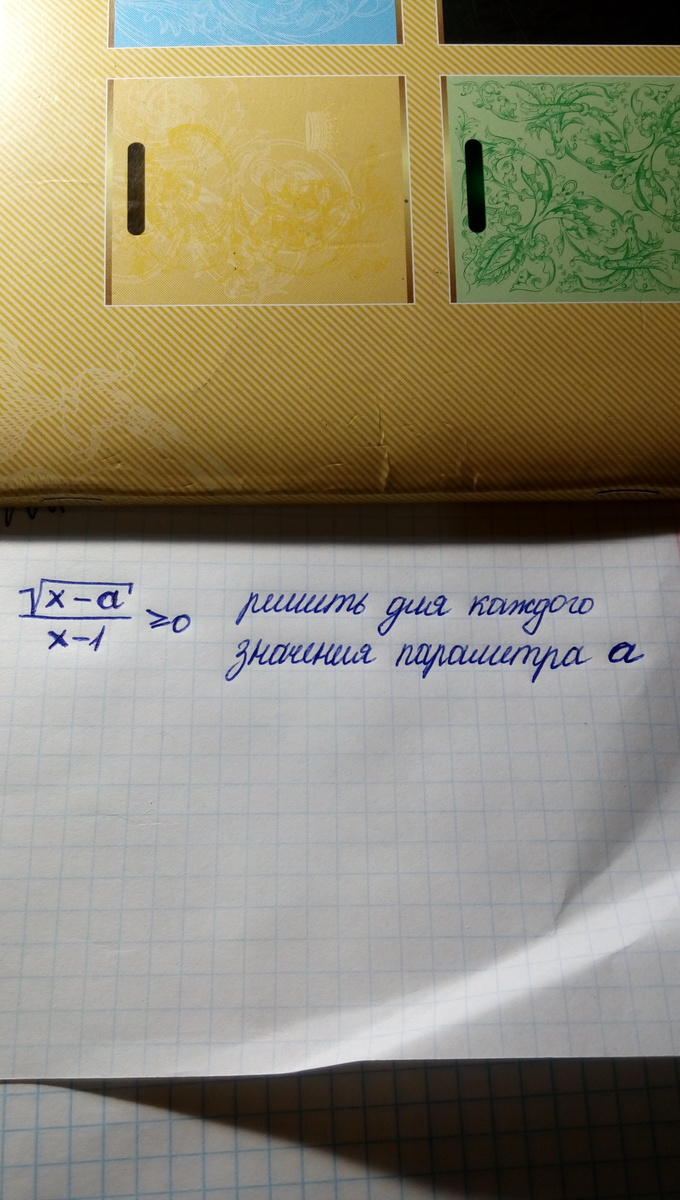 √(x-a) / (x-1) ≥0 решить для каждого
значения параметра a